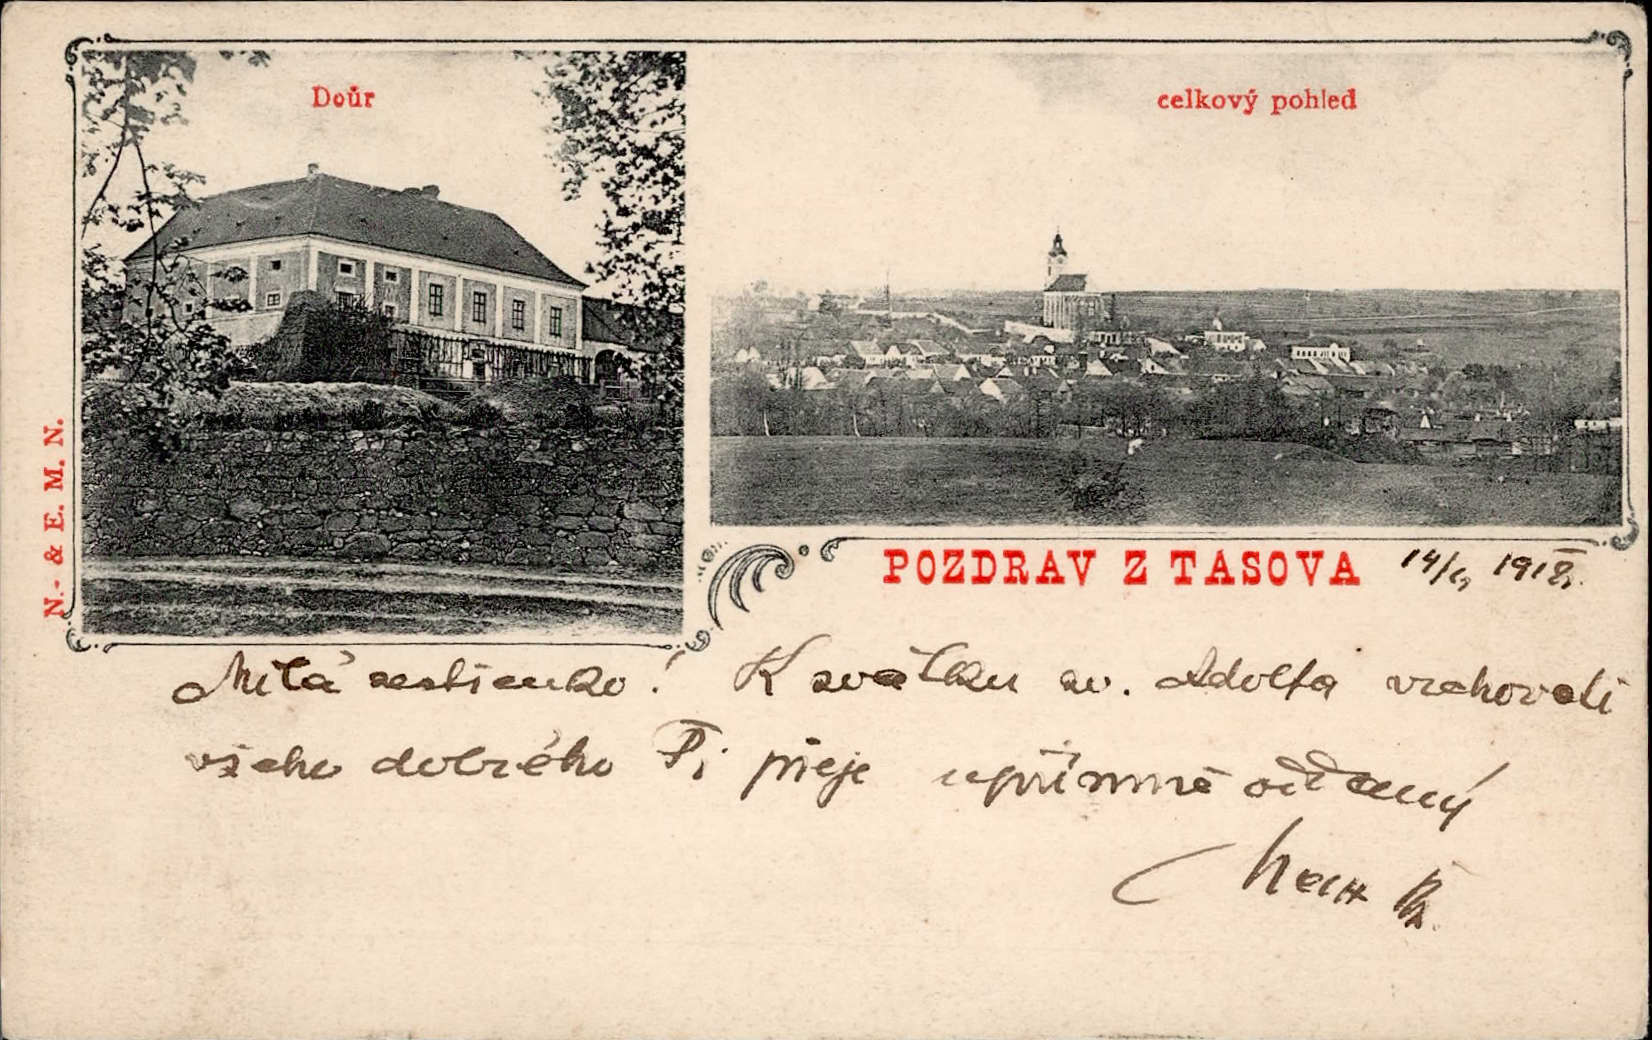 Doůr
celkový pohled
N.- & E. M. N.
POZDRAV Z TASOVA 14/6
Milá sestřenko! K svátku sv. Adolfa vrchovatě
všeho dobrého Ti přeje upřímně oddaný